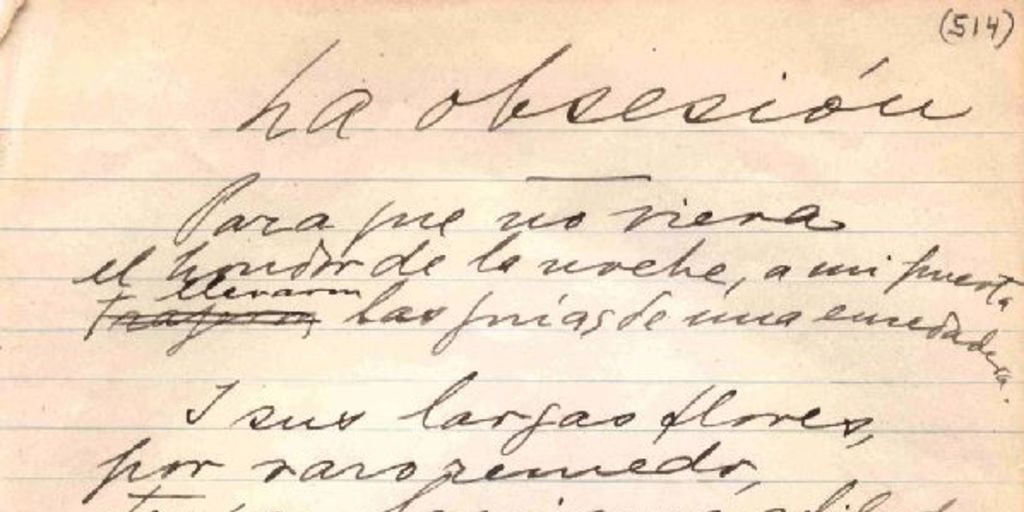 (514)
La obsesión
Para que no viera
el hondor de la noche, a mi puerta
llevaron
trajeron las guías de una enredadera.
I sus largas flores,
por raro remedo,